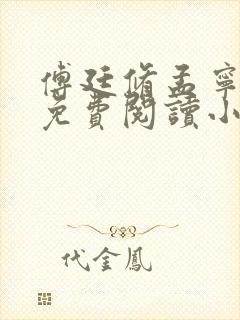 傅廷脩孟寧
免費閱讀小
代金鳳